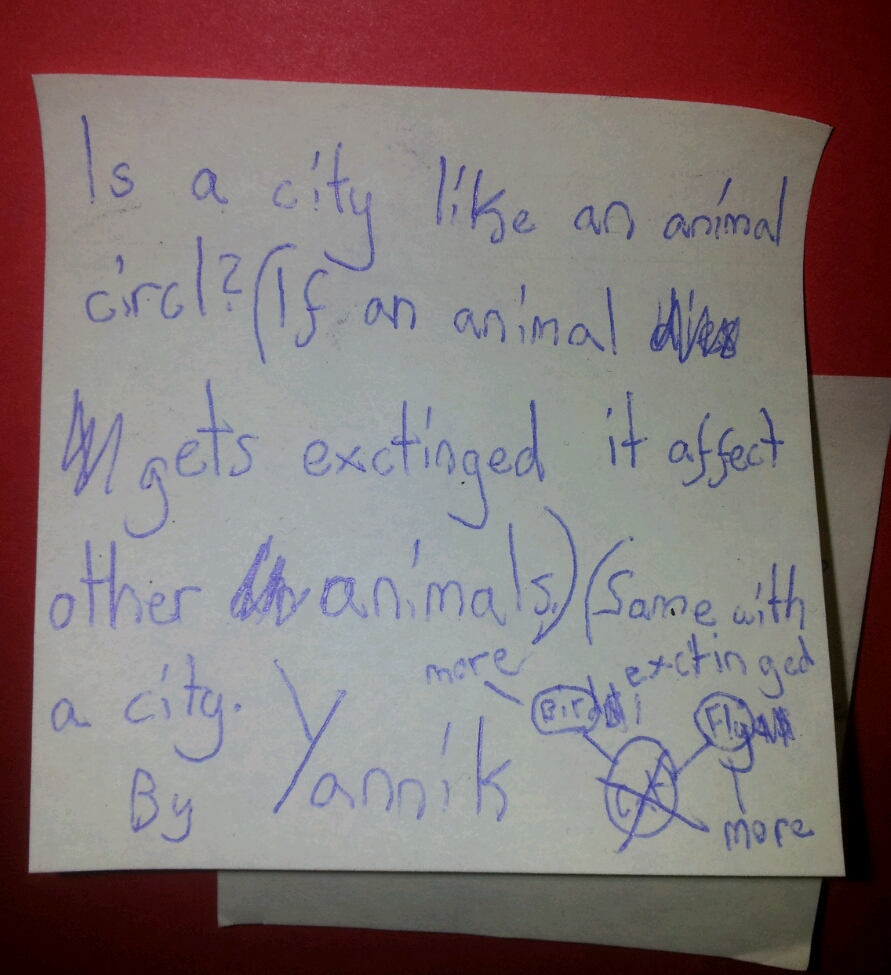 Is a city like an animal
circl? (If an animal
gets exctinged it affect
other animals.) (Same with
a city.
more
exctinged
Bird
Fly
By Yannik
more